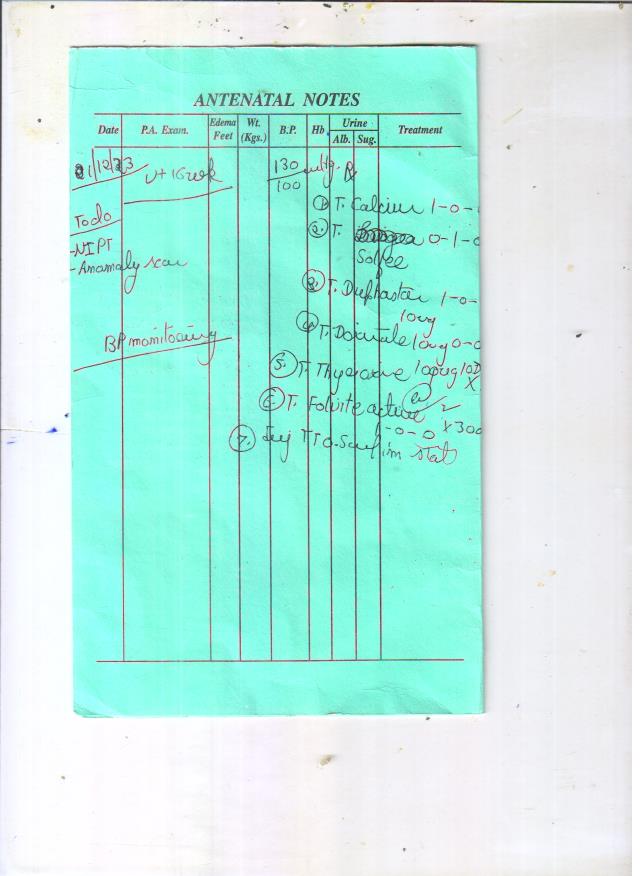 ANTENATAL NOTES
Date P.A. Exam. Edema Feet Wt. (Kgs.) B.P. Hb. Urine Alb. Sug. Treatment
01/12/23 130/100 mmHg Rx
① T. Calcium 1-0-
To do
② T. 0-1-0
-NIPT
- Anamaly scan
③ T. Duphaston 1-0-
10mg
④ T. Doxinate 10mg 0-0
BP monitoring
⑤ T. Thyroxine 100mg
⑥ T. Folvite active
1-0-0 x 30
⑦ Inj TT 0.5ml im stat